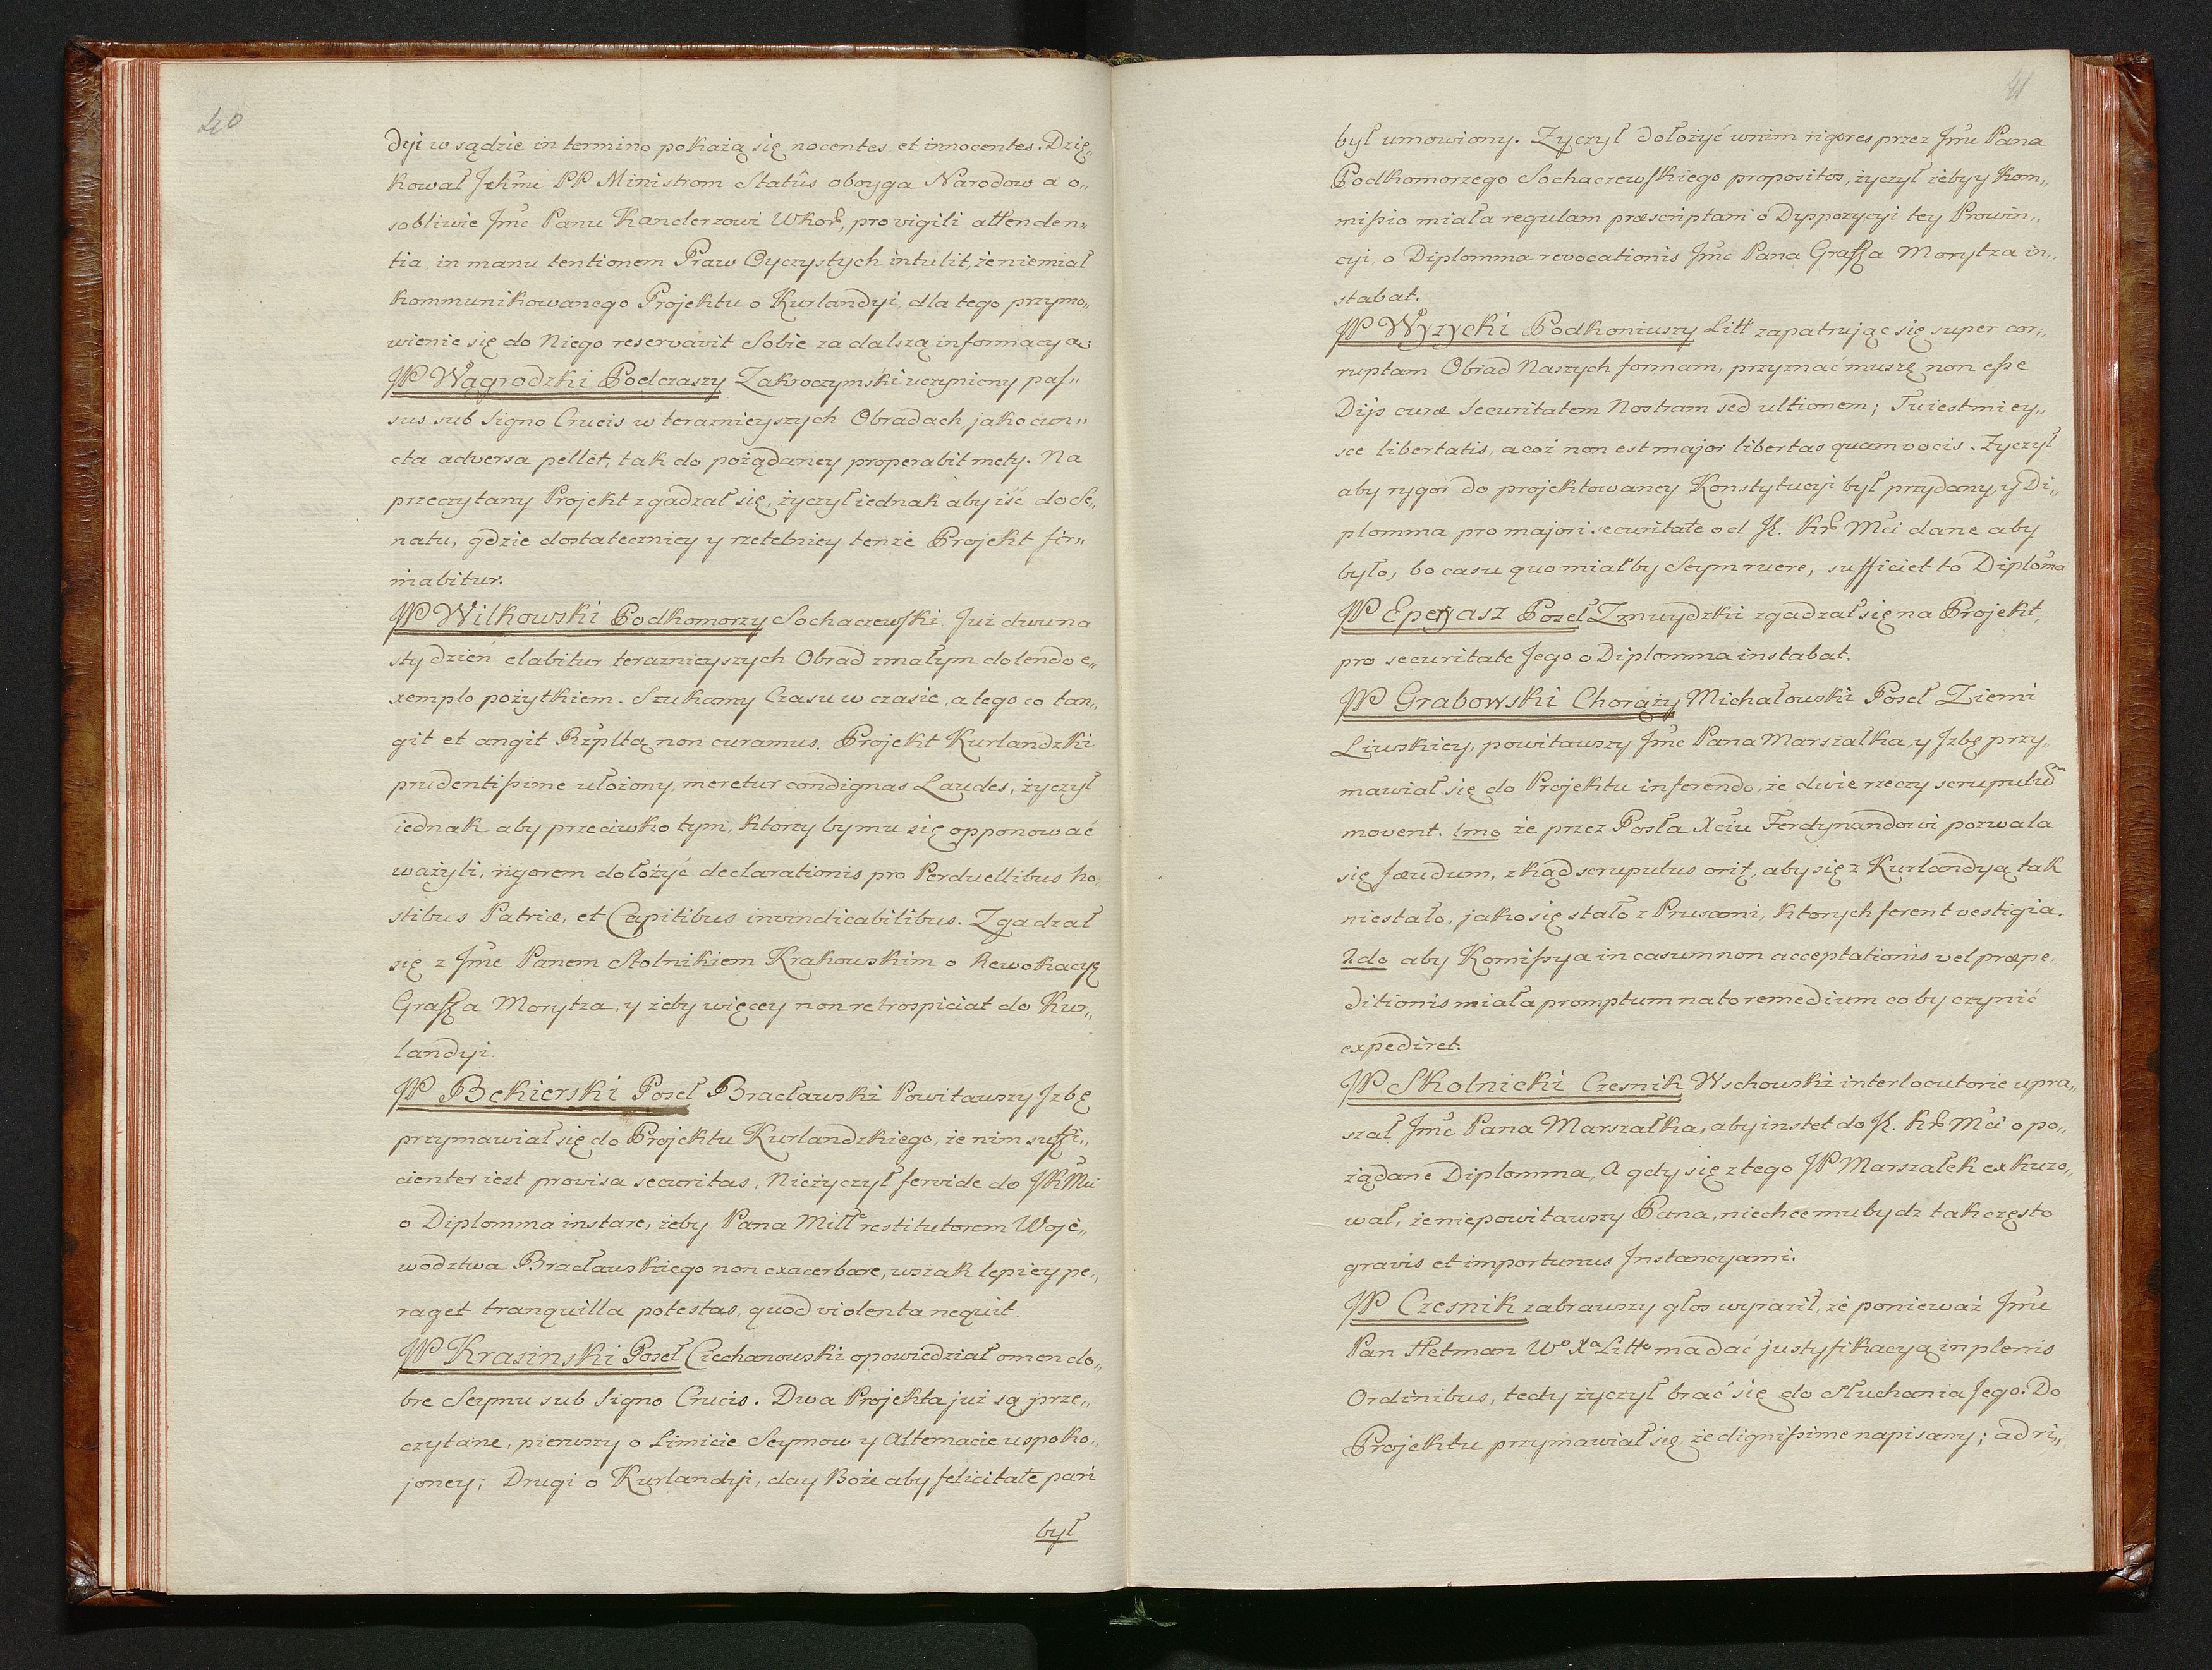 40
dyi w sądzie in termino pokażą się nocentes et innocentes. Dzię„
kował Jchmc PP Ministrom Statûs oboyga Narodow a o„
sobliwie Jmć Panu Kanclerzowi WKor, pro vigili attenden„
tia, in manu tentionem Praw Oyczystych intulit, że niemiał
kommunikowanego Projektu o Kurlandyi, dla tego przymo„
wienie się do Niego reservavit Sobie za dalszą informacyą
JP Wągrodzki Podczaszy Zakroczymski uczyniony pas„
sus sub Signo Crucis w teraznieyszych Obradach, jako cun„
cta adversa pellet, tak do pożądaney properabit mety. Na
przeczytany Projekt zgadzał się, życzył iednak aby iść do Se„
natu, gdzie dostateczniey y rzetelniey tenże Projekt fir„
mabitur.
JP Wilkowski Podkomorzy Sochaczewski. Już dwuna
sty dzień elabitur teraznieyszych Obrad z małym dolendo e„
xemplo pożytkiem. Szukamy Czasu w czasie, a tego co tan„
git et angit Rzplta, non curamus. Projekt Kurlandzki
prudentissime ułożony, meretur condignas Laudes, życzył
iednak aby przeciwko tym, ktorzy by mu się opponować
ważyli, rigorem dołożyć declarationis pro Perduellibus ho„
stibus Patriæ, et Capitibus invindicabilibus. Zgadzał
się z Jmc Panem Stolnikiem Krakowskim o Rewokacyę
Graffa Morytza, y żeby więcey non retrospiciat do Kur„
landyi.
JP Bekierski Poseł Bracławski Powitawszy Jzbę
przymawiał się do Projektu Kurlandzkiego, że nim suffi„
cienter iest provisa securitas, Nieżyczył fervide do JKMci
o Diplomma instare, żeby Pana Miłłe restitutorem Woje„
wodztwa Bracławskiego non exacerbare, wszak lepiey pe„
raget tranquilla potestas, quod violenta nequit.
JP Krasinski Poseł Ciechanowski opowiedział omen do„
bre Seymu sub Signo Crucis. Dwa Projekta już są prze„
czytane, pierwszy o Limicie Seymow y Alternacie uspoko„
joney; Drugi o Kurlandyi, day Boże aby felicitate pari
był
41
był umowiony. Zyczył dołożyć w nim rigores przez Jmc Pana
Podkomorzego Sochaczewskiego propositos, życzył żeby y Kom„
missio miała regulam præscriptam o Dyppozycyi tey Prowin„
cyi, o Diplomma revocationis Jmć Pana Graffa Morytza in„
stabat.
JP Wyzycki Podkoniuszy Litt zapatrując się super cor„
ruptam Obrad Naszych formam, przyznać muszę non esse
Dijs curæ Securitatem Nostram sed ultionem; Tu iest miey„
sce libertatis, a coż non est major libertas quam vocis. Zyczył
aby rygor do projektowaney Konstytucyi był przydany, y Di„
plomma pro majori securitate od JK. Kr Mci dane aby
było, bo casu quo miałby Seym ruere, sufficiet to Diplomā
JP Eperyasz Poseł Zmuydzki zgadzał się na Projekt,
pro securitate Jego o Diplomma instabat.
JP Grabowski Chorąży Michałowski Poseł Ziemi
Liwskiey, powitawszy Jmć Pana Marszałka, y Jzbę przy„
mawiał się do Projektu inferendo, że dwie rzeczy scrupulū
movent. 1mo że przez Posła Xciu Ferdynandowi pozwala
się fæudum, zkąd scrupulus orit, aby się z Kurlandyą tak
niestało, jako się stało z Prusami, ktorych ferent vestigia.
2do aby Komissya in casum non acceptationis vel præpe„
ditionis miała promptum na to remedium co by czynić
expediret.
JP Skolnicki Czesnik Wschowski interlocutorie upra„
szał Jmć Pana Marszałka, aby instet do JK. Kr Mci o po„
żądane Diplomma, A gdy się z tego JP Marszałek exkuzo„
wał, że niepowitawszy Pana, niechce mu bydz tak często
gravis et importunus Jnstancyami.
JP Czesnik zabrawszy głos wyraził, że ponieważ Jmc
Pan Hetman Wo Xa Litto ma dać justyfikacyą in plenis
Ordinibus, tedy życzył brać się do słuchania Jego. Do
Projektu przymawiał się, że dignissime napisany; ad ri„